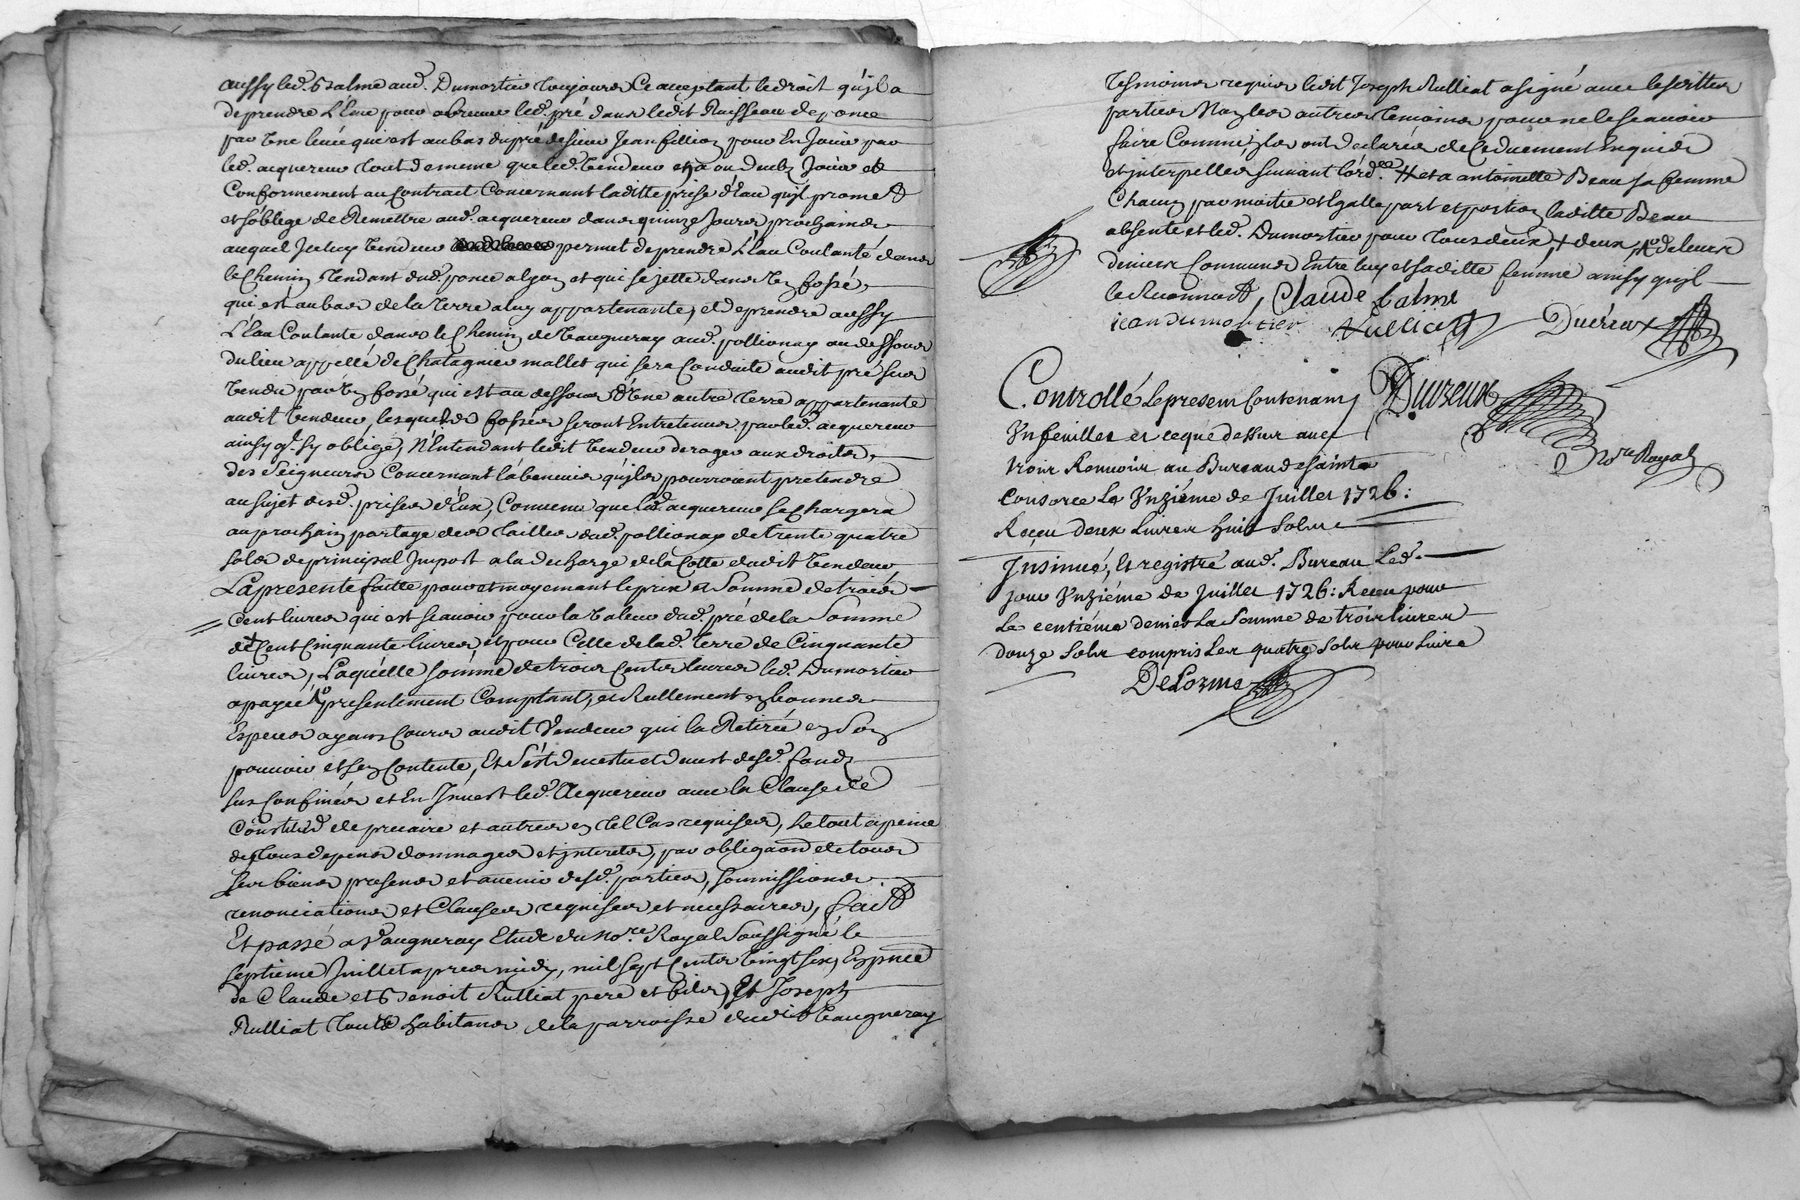 aussy led. Balme aud. Dumortier toujours ce acceptant le droit qu'il a
de prendre l'Eau pour abreuver led. pré dans ledit Ruisseau de ponce
par une levée qui est au bas du pré de sieur Jean fillion pour En Jouir par
led. acquereur tout de meme que led. vendeur en a ou dub Jouir et
Conformement au Contract Concernant laditte prise d'Eau qu'il promet
et s'oblige de Remettre aud. acquereur dans quinze Jours prochains
auquel Jceluy vendeur permet de prendre L'Eau Coulante dans
le Chemin tendant dud. ponce a lyon et qui se jette dans un fossé,
qui est au bas de la terre a luy appartenante, et de prendre aussy
L'Eau Coulante dans le Chemin de Vaugneray aud. pollionay au dessous
du lieu appellé de Chatagnier mallet qui sera Conduite audit pré sus
vendu par un fossé qui est au dessous d'Une autre terre appartenante
audit vendeur, lesquels fossés seront Entretenus par led. acquereur
ainsy qu'il sy oblige, N'Entendant ledit vendeur deroger aux droits,
des Seigneurs Concernant la benerie qu'ils pourroient pretendre
au sujet desd. prises d'Eau, Convenu que led. acquereur se Chargera
au prochain partage des tailles dud. pollionay de trente quatre
sols de principal Jmpost a la decharge de la Cotte dudit vendeur,
La presente faitte pour et moyennant le prix et Somme de trois
Cent livres qui est scavoir pour la valeur dud. pré de la Somme
de Cent Cinquante livres et pour Celle de lad. terre de Cinquante
livres, Laquelle somme de trois Cents livres led. Dumortier
a payée presentement Comptant, et Reellement en bonnes
Especes ayans Cours audit Vendeur qui la Retirée en son
pouvoir et s'en Contente, Et s'est devestu et demet desd. fonds
sus Confinés et En Jnvest led. Acquereur avec la Clause de
Constitut de precaire et autres en tel Cas requises, Le tout a peine
de tous depens dommages et jnterets, par obligaon de tous
ses biens presens et avenir desd. parties, soumissions
renonciations et Clauses requises et necessaires, fait
Et passé a Vaugneray Etude du No.re Royal Soussigné le
septieme Juillet apres midy, mil sept cents vingt six, En pnce
de Claude et Benoit Rulliat pere et fils, Et Joseph
Rulliat tous habitans de la parroisse dudit Vaugneray
tesmoins requis ledit Joseph Rulliat a signé avec lesdittes
parties Non les autres temoins pour ne le scavoir
faire Comme jls ont declarés de Ce duement enquis
et jnterpellés suivant l'ord.ce # et a antoinette Beau sa femme
Chacun par moitié et Egalle part et portion laditte Beau
absente et led. Dumortier pour tous deux + deux # de leurs
deniers Communs Entre luy et saditte femme ainsy qu'il
le Reconnoit, Claude balme
iean dumortier Rulliat Ducreux
Controllé Le present Contenant Ducreux
Vn feuillet et ce que dessus avec
trois Renvois au Bureau de Sainte No.re Royal
Consorce Le Vnziéme de Juillet 1726:
Receu deux Livres huit Sols
Jnsinué, et registré aud. Bureau Led.
jour Vnziéme de Juillet 1726: Receu pour
Le centiéme denier La Somme de trois Livres
douze Sols compris Les quatre Sols pour Livre
DeLorme